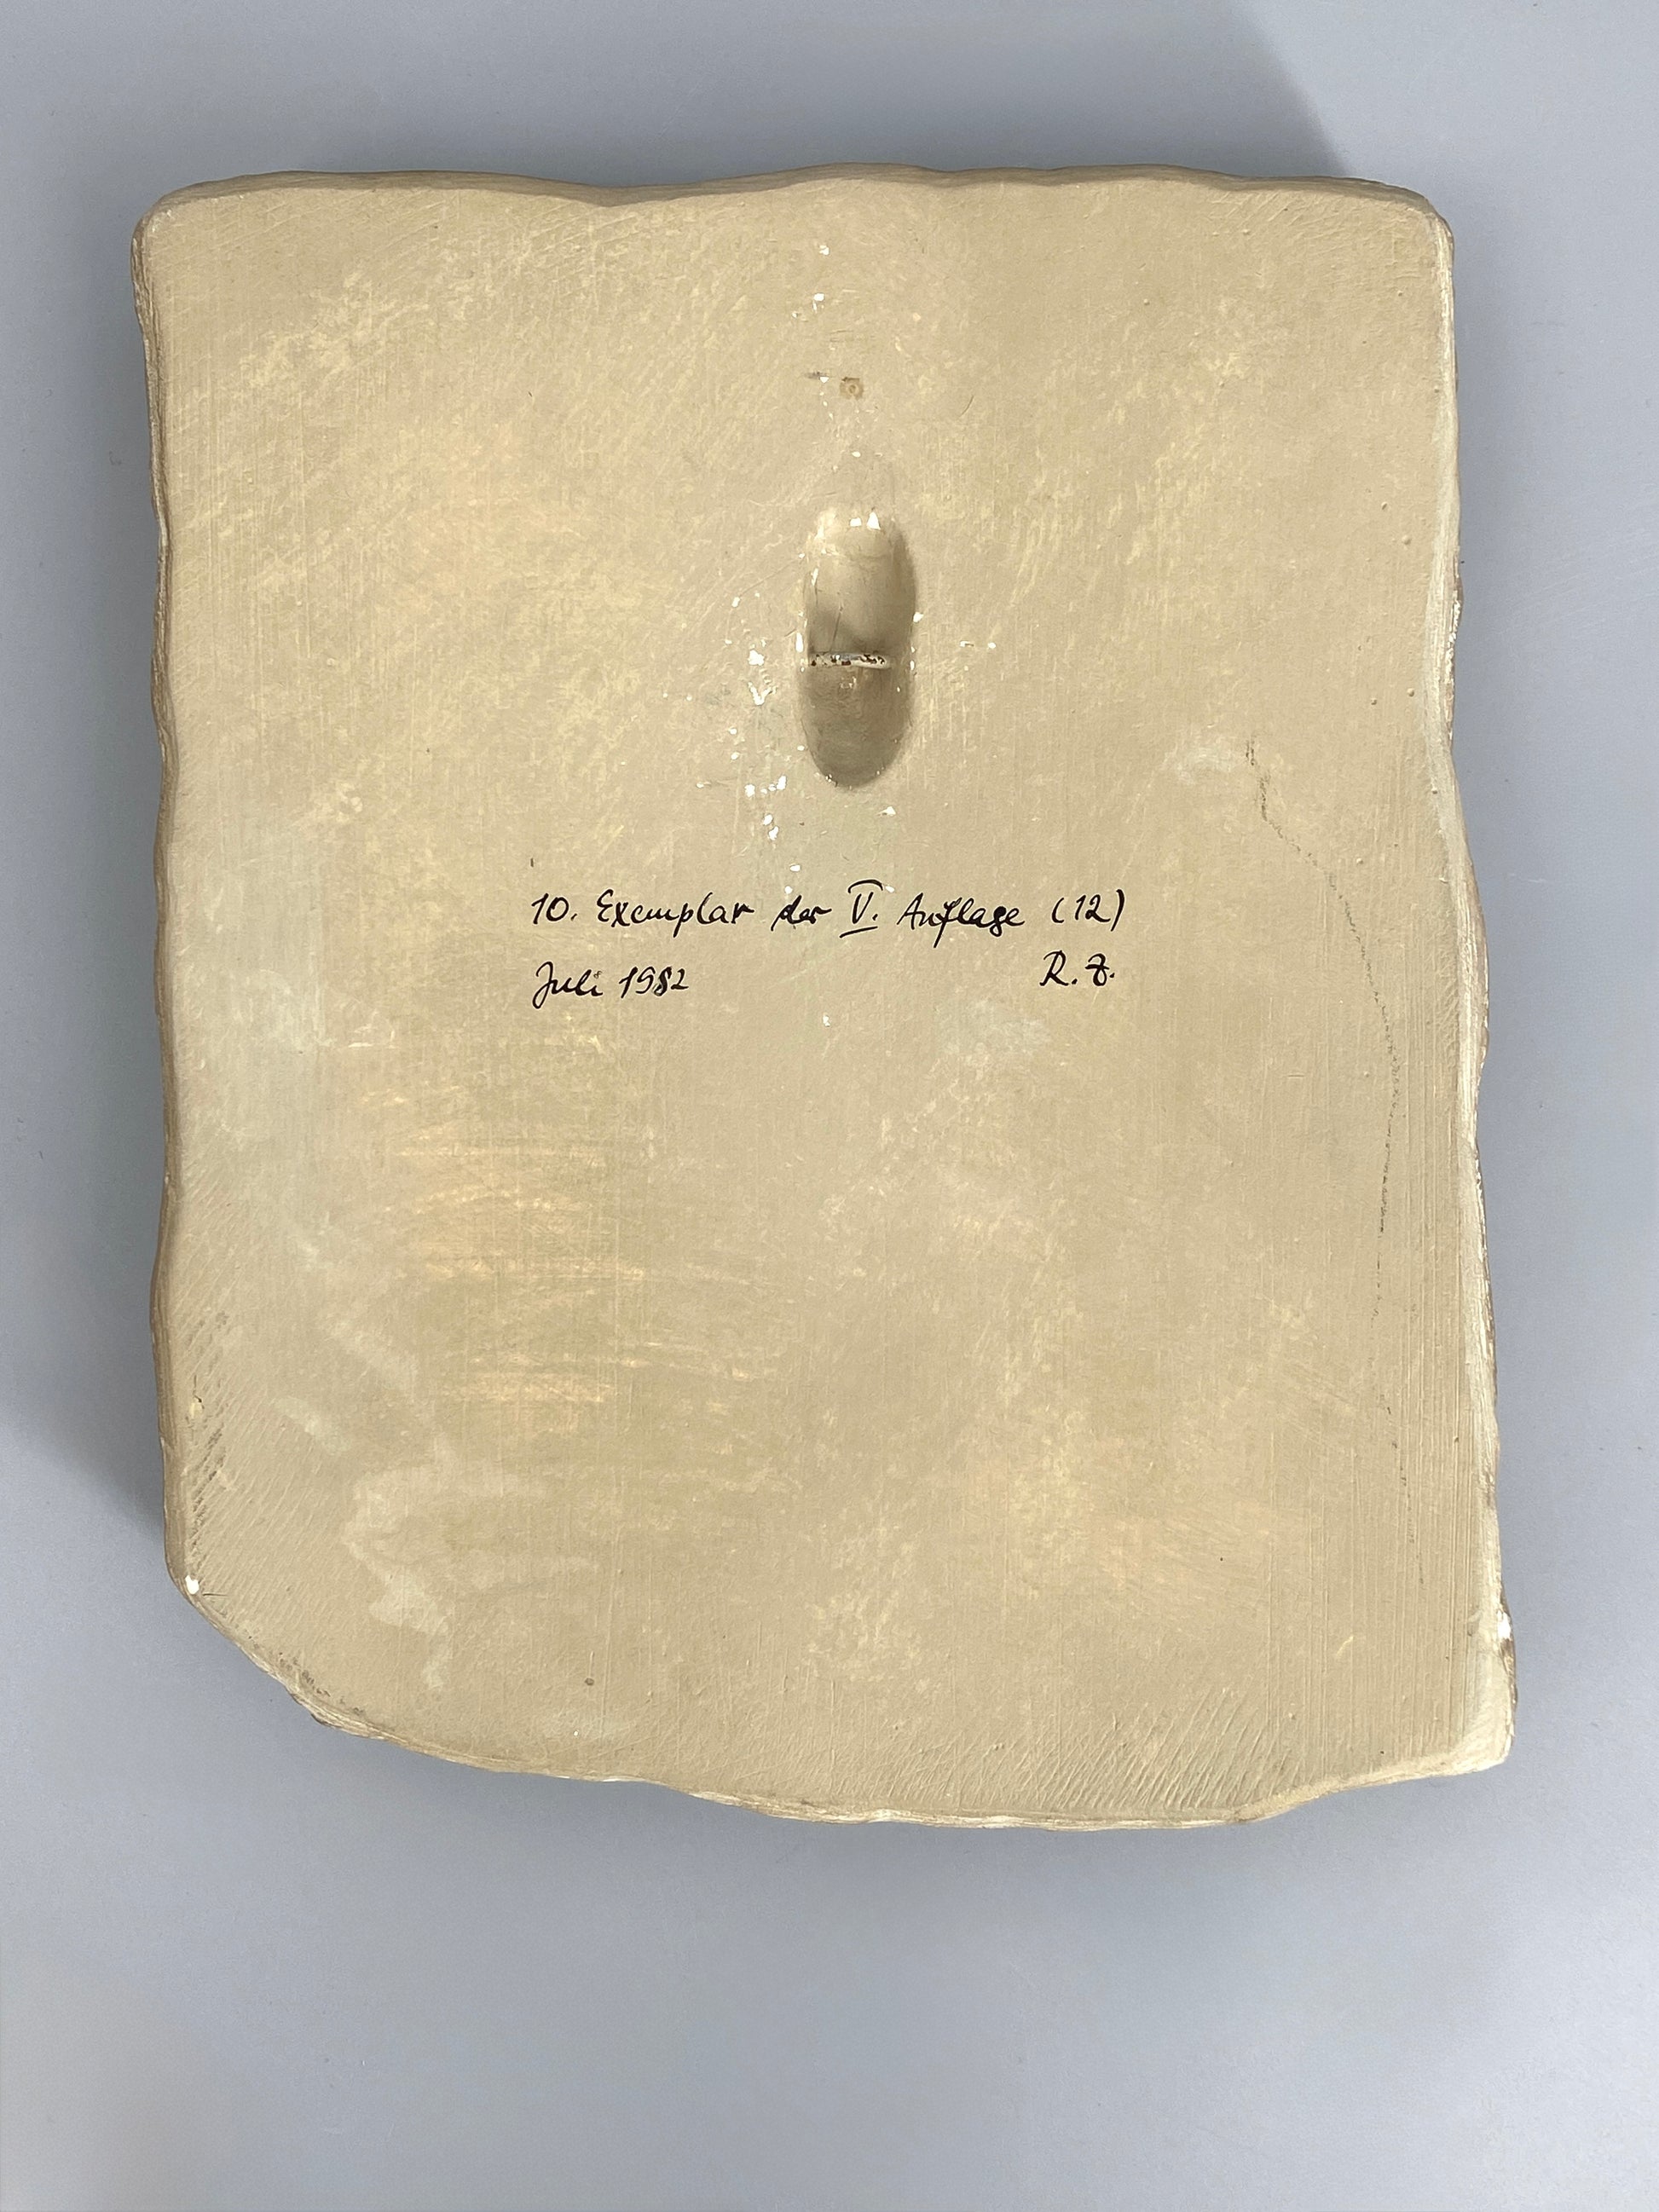 10. Exemplar der V. Auflage (12)
Juli 1982 R. Z.